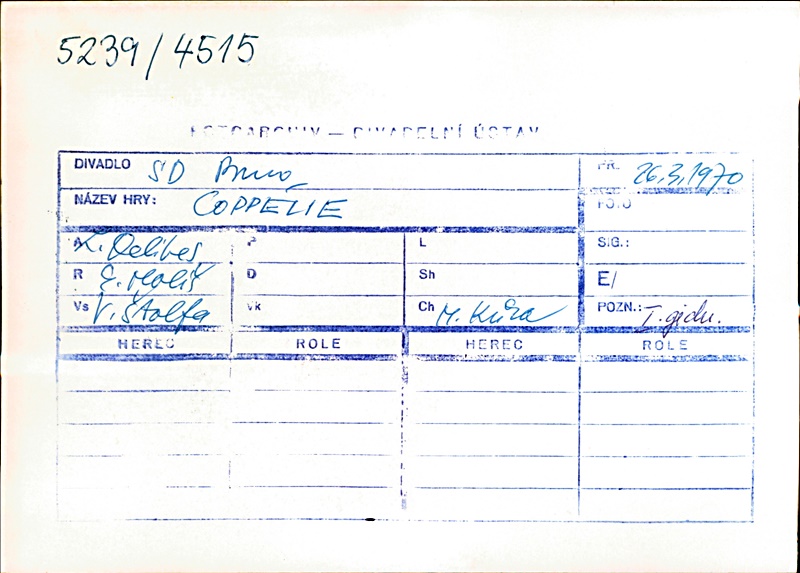 5239/4515
FOTOARCHIV — DIVADELNÍ ÚSTAV
DIVADLO SD Brno PŘ. 26.3.1970
NÁZEV HRY: COPPELIE FOTO
A L. Delibes P L SIG.:
R D Sh E/
Vs V. Štolfa Vk Ch M. Kůra POZN.: I.
HEREC ROLE HEREC ROLE